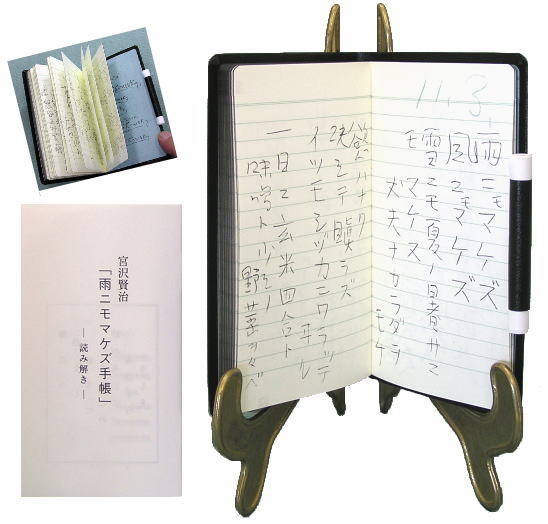 11.3.
雨ニモマケズ
風ニモマケズ
雪ニモ夏ノ暑サニ
モ マケヌ
丈夫ナカラダヲ
モチ
慾ハナク
決シテ瞋ラズ
イツモシヅカニワラッテ
ヰル
一日ニ玄米四合ト
味噌ト少シノ野菜ヲタベ
宮沢賢治
「雨ニモマケズ手帳」
―読み解き―